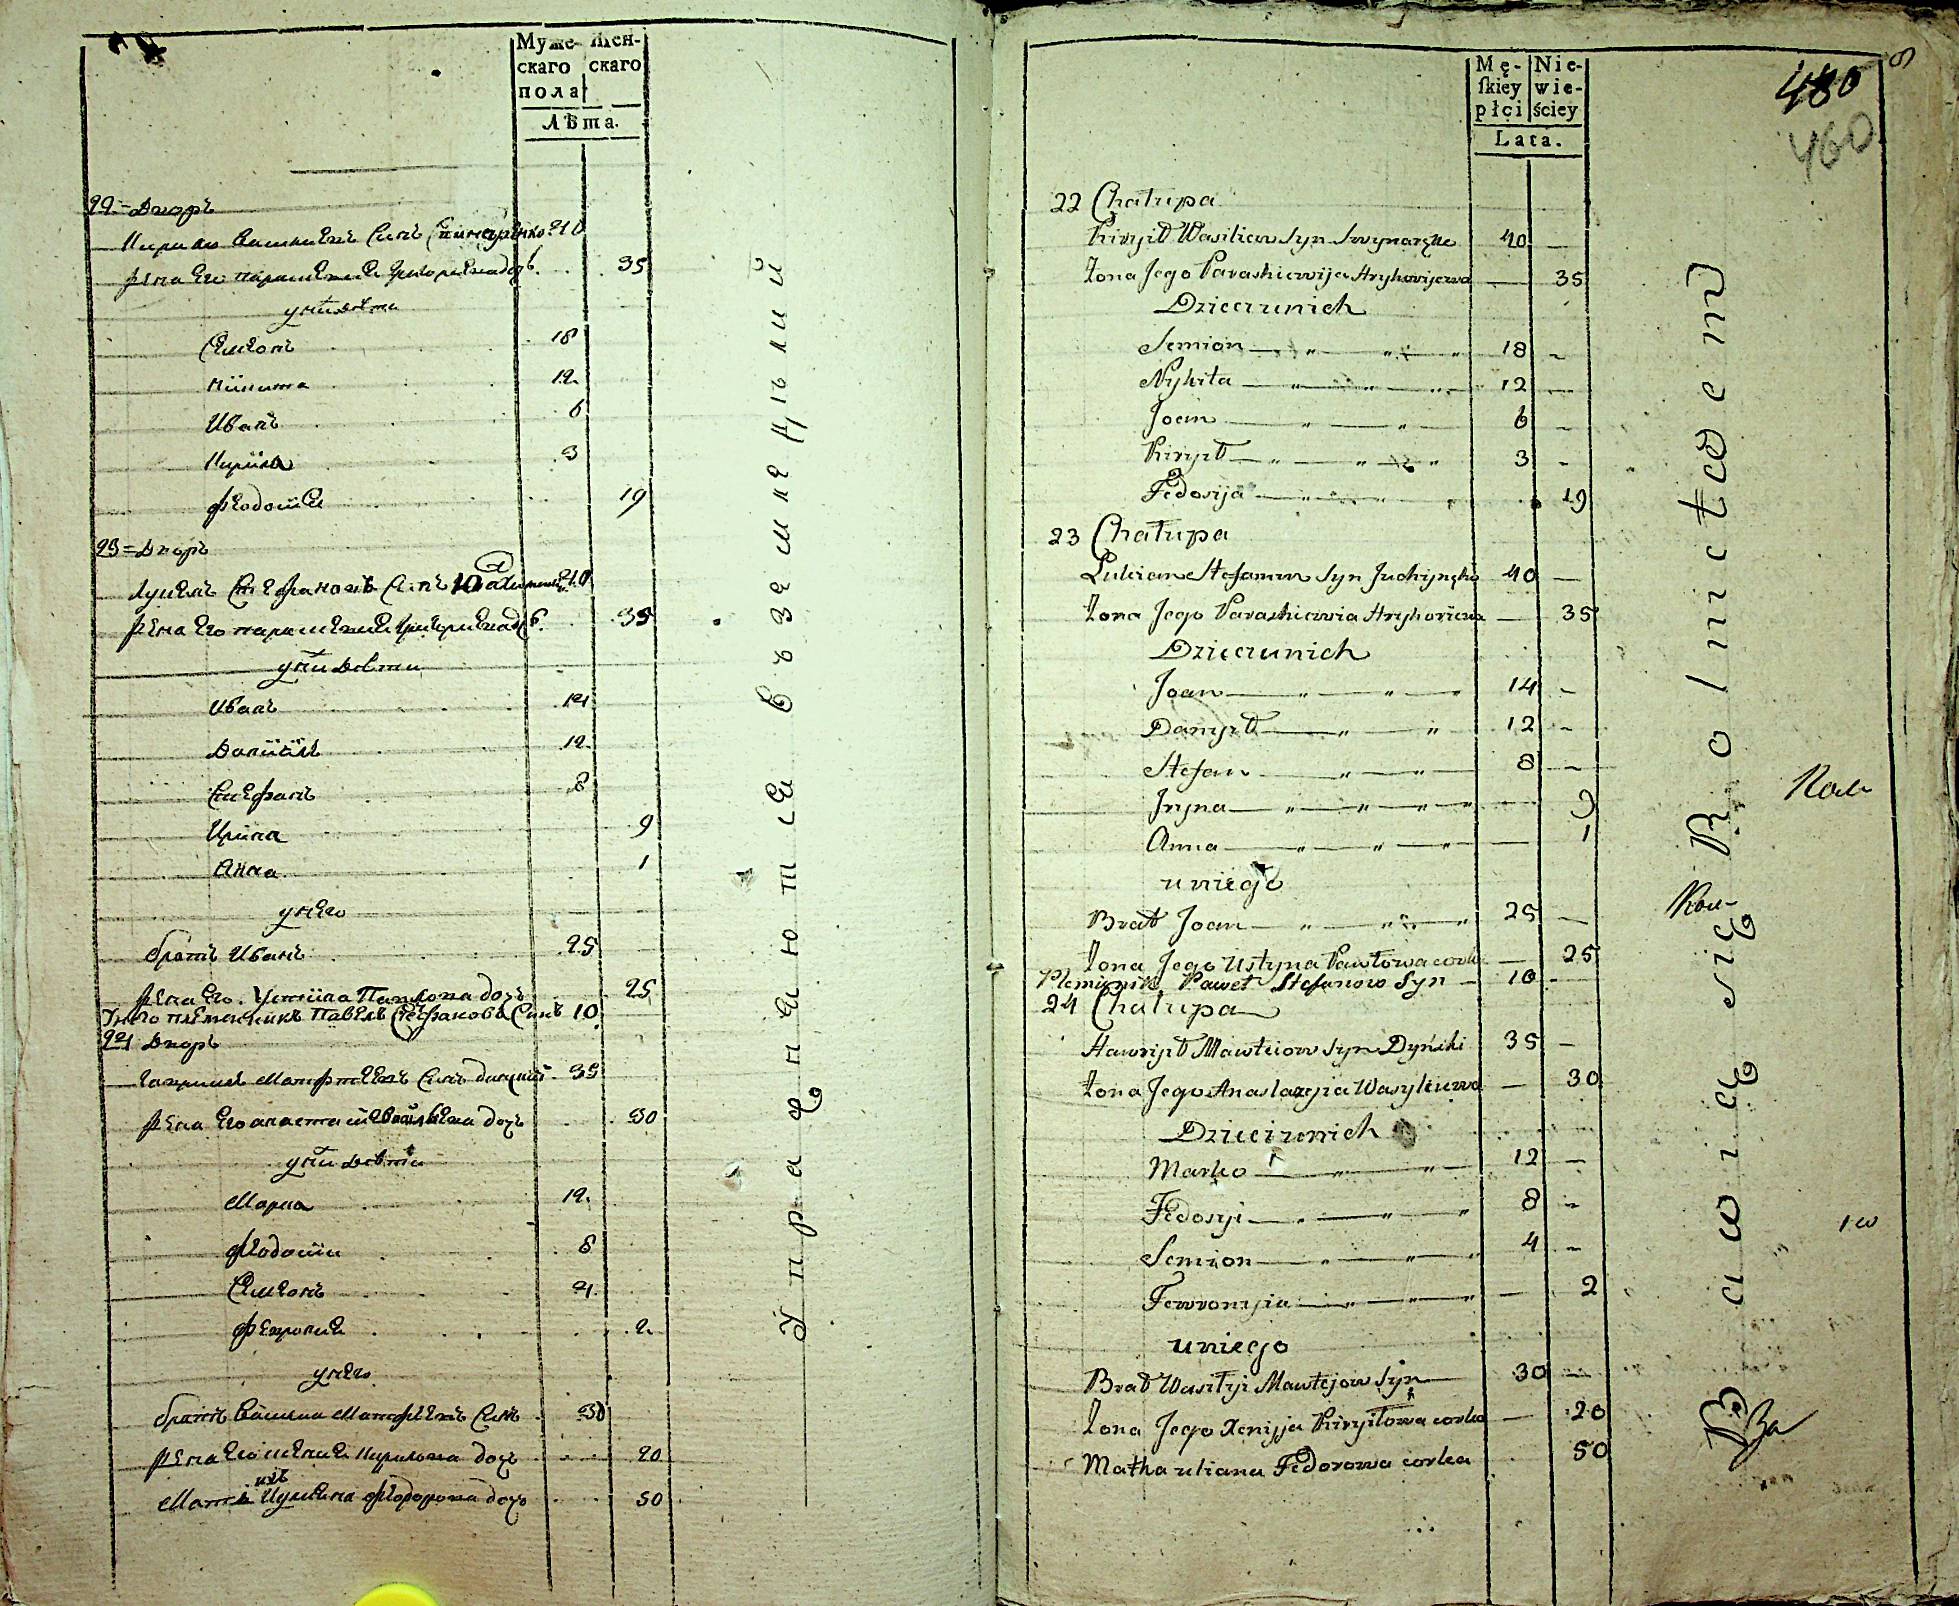 Муже- Жен-
скаго скаго
пола
Лѣта.
22 = Дворъ
Кирило Васильевъ Синъ 40
Жена Его Параскевия Григориева дочь 35
у нихъ дѣти
Симеонъ 18
Никита 12
Иванъ 6
Кирило 3
Феодосия 19
23 = Дворъ
Лукянъ Стефановъ Синъ 40
Жена Его Параскевия Григориева дочь 35
у нихъ дѣти
Иванъ 14
Даниилъ 12
Стефанъ 8
Ирина 9
Анна 1
у него
братъ Иванъ 25
Жена Его Устина Павлова дочь 25
У него племенникъ Павелъ Стефановъ Синъ 10
24 Дворъ
Гаврилъ Матфеевъ Синъ 35
Жена Его Анастасия Василева дочь 30
у нихъ дѣти
Марко 12
Феодосий 8
Симеонъ 4
Феврония 2
у него
братъ Василий Матфеевъ Синъ 30
Жена Его Ксения Кирилова дочь 20
Мати ихъ Иулияна Феодорова дочь 50
Упражняются въ земледѣлии
480
460
Mę- Nie-
ſkiey wie-
płci ściey
Lata.
22 Chałupa
Kiryło Wasiliew Syn 40
Żona Jego Paraskiewija Hryhorijewa 35
Dzieci u nich
Semion 18
Nykita 12
Joan 6
Kiryło 3
Fedosija 19
23 Chałupa
Lukian Stefanow Syn 40
Żona Jego Paraskiewia Hryhoriewa 35
Dzieci u nich
Joan 14
Danyło 12
Stefan 8
Iryna 9
Anna 1
u niego
Brat Joan 25
Żona Jego Ustyna Pawłowa corka 25
Plemiennik Paweł Stefanow Syn 10
24 Chałupa
Hawryło Mawtiiow Syn 35
Żona Jego Anastazyia Wasylewa 30
Dzieci u nich
Marko 12
Fedosyi 8
Semion 4
Fewronyia 2
u niego
Brat Wasilyi Mawtejow Syn 30
Żona Jego Xeniya Kiryłowa corka 20
Matka Uliana Fedorowa corka 50
Bawią się Rolnictwem